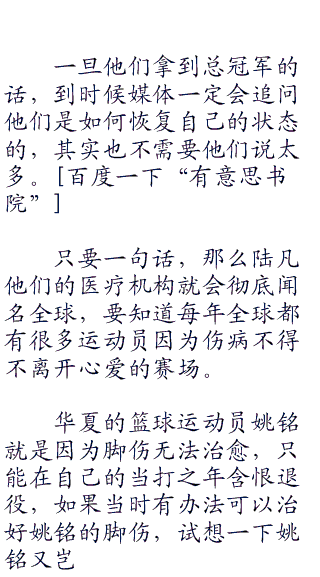 一旦他们拿到总冠军的
话，到时候媒体一定会追问
他们是如何恢复自己的状态
的，其实也不需要他们说太
多。[百度一下“有意思书
院”]
只要一句话，那么陆凡
他们的医疗机构就会彻底闻
名全球，要知道每年全球都
有很多运动员因为伤病不得
不离开心爱的赛场。
华夏的篮球运动员姚铭
就是因为脚伤无法治愈，只
能在自己的当打之年含恨退
役，如果当时有办法可以治
好姚铭的脚伤，试想一下姚
铭又岂